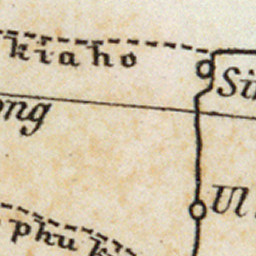 kiaho
Si
ong
Ul
phu k